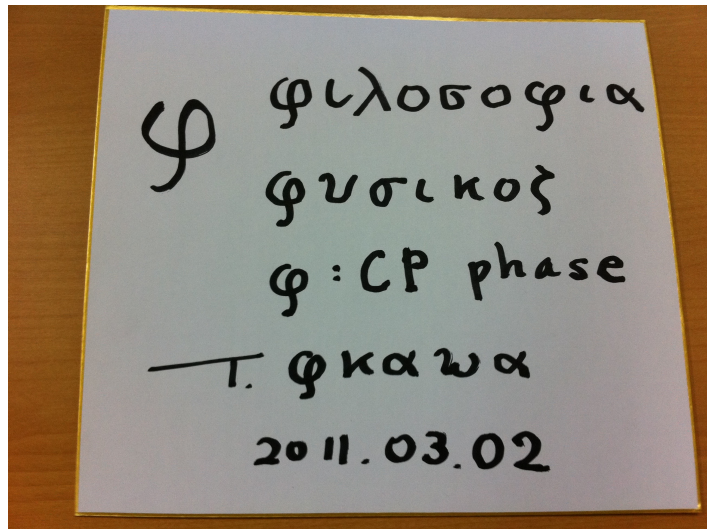 φ φιλοσοφια
φυσικος
φ : CP phase
— T. φκαωα
2011.03.02